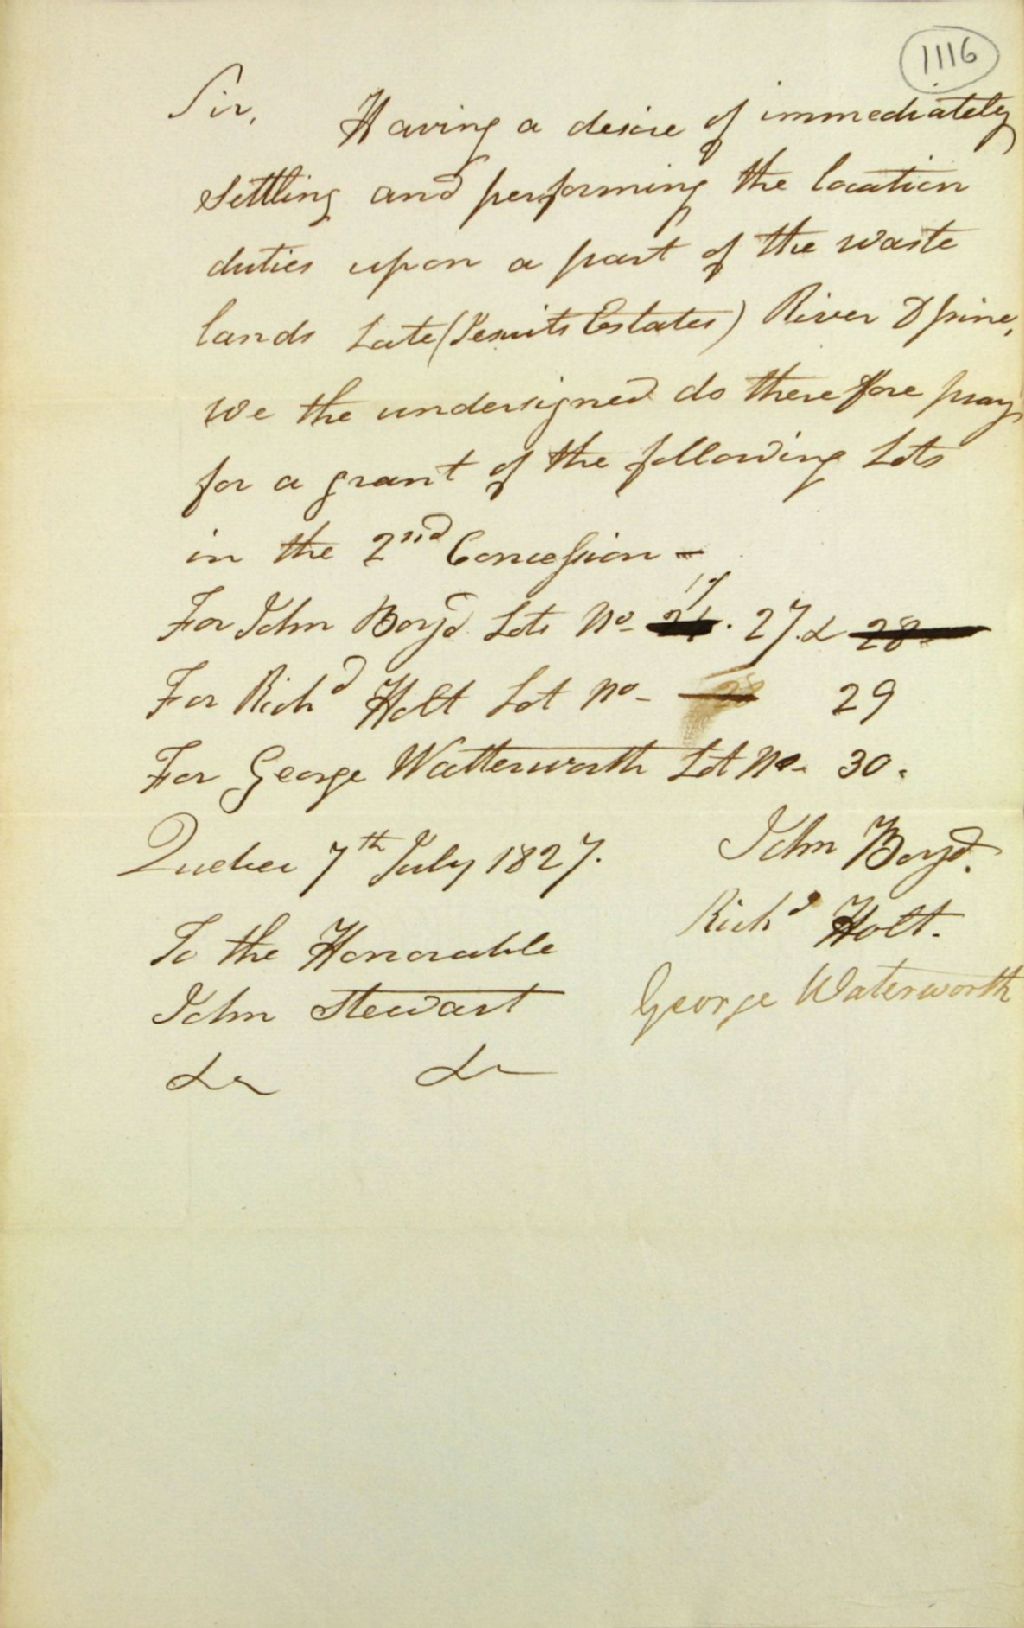 1116
Sir, Having a desire of immediately
settling and performing the location
duties upon a part of the waste
lands Late (Jesuits Estates) River D'pine,
we the undersigned do therefore pray
for a grant of the following Lots
in the 2nd Concession -
17
For John Boyd Lots No - 27. & 28
For Richd Holt Lot No - 29
For George Watterworth Lot No - 30.
Quebec 7th July 1827.
John Boyd.
Richd Holt.
George Waterworth
To the Honorable
John Stewart
&c &c